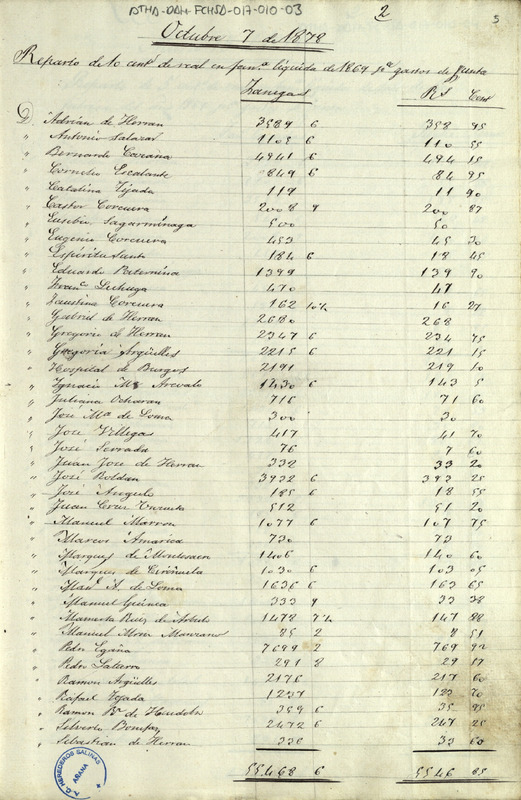 ATHA-DAH-FCHSA-017-010-03
2
5
Octubre 7 de 1878
Reparto de 10 cent. de real en fan.ª líquida de 1867 p.ª gastos de Junta
Fanegas Rs Cent
D Adrian de Herran 3589 6 358 95
" Antonio Salazar 1105 6 110 55
" Bernardo 4941 6 494 15
" Cornelio Escalante 849 6 84 95
" Catalina Tejada 119 11 90
" Castor Corcuera 2008 9 200 87
" Eusebio Sagarmínaga 500 50
" Eugenio Corcuera 453 45 30
" Espíritu Santo 184 6 18 45
" Eduardo Paternina 1399 139 90
" Fran.co Lechuga 470 47
" Faustina Corcuera 162 10½ 16 27
" Gabriel de Herran 2680 268
" Gregorio de Herran 2347 6 234 75
" Gregoria Argüelles 2215 6 221 15
" Hospital de Burgos 2191 219 10
" Ignacio Mª Arevalo 1430 6 143 5
" Juliana Ocharan 716 71 60
" José Mª de Loma 300 30
" José Villegas 417 41 70
" José Serrada 76 7 60
" Juan José de Herran 332 33 20
" José Roldan 3932 6 393 25
" José Angulo 185 6 18 55
" Juan Cruz 512 51 20
" Manuel Marron 1077 6 107 75
" Marcos Amarica 730 73
" Marques de 1406 140 60
" Marques de Cirinuela 1030 6 103 05
" Man.l A. de Loma 1636 6 163 65
" Manuel Guinea 333 9 33 38
" Mamerta Ruiz de 1478 147 88
" Manuel Manzano 85 2 8 51
" Pedro Egaña 7699 2 769 92
" Pedro 291 8 29 17
" Ramon Argüelles 2176 217 60
" Rafael Tejada 1237 123 70
" Ramon de 359 6 35 95
" Silverio 2472 6 247 25
" Sebastian de Herran 336 33 60
55468 6 5546 85
A.C. HEREDEROS SALINAS
AÑANA